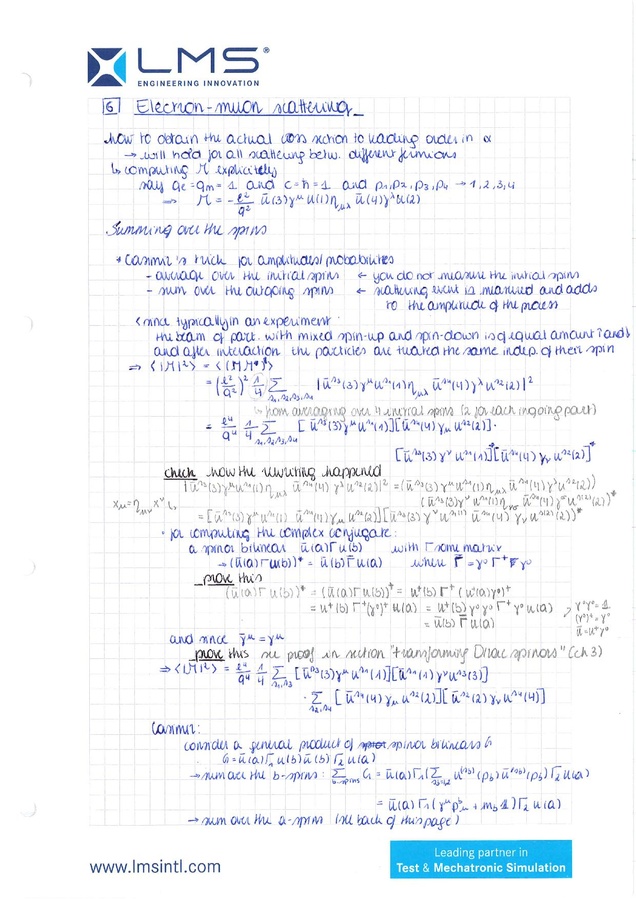 LMS®
ENGINEERING INNOVATION
6 Electron-muon scattering
how to obtain the actual cross section to leading order in α
→ will hold for all scattering betw. different fermions
↳ computing M explicitely
say qe = qm = 1 and c=ħ=1 and p1, p2, p3, p4 → 1,2,3,4
⇒ M = - e²/q² ū(3)γ^μ u(1)η_μλ ū(4)γ^λ u(2)
Summing over the spins
* Casimir's trick for amplitudes/probabilities
- average over the initial spins ← you do not measure the initial spins
- sum over the outgoing spins ← scattering event is measured and adds
to the amplitude of the process
since typically in an experiment:
the beam of part. with mixed spin-up and spin-down is of equal amount
and after interaction the particles are treated the same indep. of their spin
⇒ ⟨|M|²⟩ = ⟨|M M*|⟩
= (e²/q²)² 1/4 Σ_{s1,s2,s3,s4} |ū^s3(3)γ^μ u^s1(1)η_μλ ū^s4(4)γ^λ u^s2(2)|²
↳ from averaging over 4 initial spins (2 for each ingoing part)
= e⁴/q⁴ 1/4 Σ_{s1,s2,s3,s4} [ū^s3(3)γ^μ u^s1(1)][ū^s4(4)γ_μ u^s2(2)]·
[ū^s3(3)γ^ν u^s1(1)]*[ū^s4(4)γ_ν u^s2(2)]*
check how the rewriting happened
|ū^s3(3)γ^μ u^s1(1)η_μλ ū^s4(4)γ^λ u^s2(2)|² = (ū^s3(3)γ^μ u^s1(1)η_μλ ū^s4(4)γ^λ u^s2(2))
x_μ=η_μν x^ν ↳ (ū^s3(3)γ^ν u^s1(1)η_νσ ū^s4(4)γ^σ u^s2(2))*
= [ū^s3(3)γ^μ u^s1(1) ū^s4(4)γ_μ u^s2(2)][ū^s3(3)γ^ν u^s1(1) ū^s4(4)γ_ν u^s2(2)]*
• for computing the complex conjugate:
a spinor bilinear ū(a)Γu(b) with Γ some matrix
→ (ū(a)Γu(b))* = ū(b)Γ̄u(a) where Γ̄ = γ⁰Γ⁺γ⁰
prove this
(ū(a)Γu(b))* = (ū(a)Γu(b))⁺ = u⁺(b)Γ⁺(u⁺(a)γ⁰)⁺
= u⁺(b)Γ⁺(γ⁰)⁺u(a) = u⁺(b)γ⁰γ⁰Γ⁺γ⁰u(a)
= ū(b)Γ̄u(a)
γ⁰γ⁰=1
(γ⁰)⁺=γ⁰
ū=u⁺γ⁰
and since γ̄^μ = γ^μ
prove this see proof in section "transforming Dirac spinors" (ch 3)
⇒ ⟨|M|²⟩ = e⁴/q⁴ 1/4 Σ_{s1,s3} [ū^s3(3)γ^μ u^s1(1)][ū^s1(1)γ^ν u^s3(3)]
· Σ_{s2,s4} [ū^s4(4)γ_μ u^s2(2)][ū^s2(2)γ_ν u^s4(4)]
Casimir:
consider a general product of spinor bilinears G
G = ū(a)Γ₁u(b)ū(b)Γ̄₂u(a)
→ sum over the b-spins: Σ_{b-spins} G = ū(a)Γ₁(Σ_{sb=1,2} u^(sb)(p_b)ū^(sb)(p_b))Γ̄₂u(a)
= ū(a)Γ₁(γ^μ p^b_μ + m_b 1)Γ̄₂u(a)
→ sum over the a-spins (see back of this page)
www.lmsintl.com
Leading partner in
Test & Mechatronic Simulation